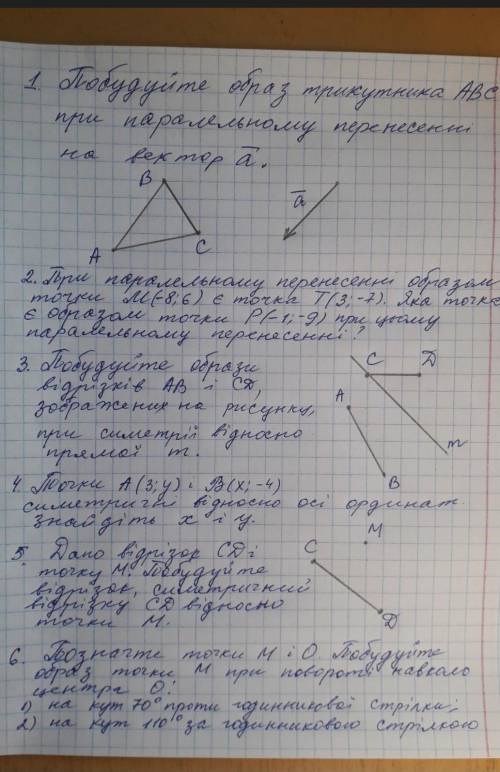 1. Побудуйте образ трикутника ABC
при паралельному перенесенні
на вектор a̅.
B
a̅
A
C
2. При паралельному перенесенні образом
точки M(-8;6) є точка T(3;-7). Яка точка
є образом точки P(-1;-9) при цьому
паралельному перенесенні?
3. Побудуйте образи
відрізків AB і CD,
зображених на рисунку,
при симетрії відносно
прямої m.
C
D
A
m
B
4. Точки A(3;y) і B(x;-4)
симетричні відносно осі ординат
знайдіть x і y.
5. Дано відрізок CD і
точку M. Побудуйте
відрізок, симетричний
відрізку CD відносно
точки M.
M
C
D
6. Позначте точки M і O. Побудуйте
образ точки M при повороті навколо
центра O:
1) на кут 70° проти годинникової стрілки;
2) на кут 110° за годинниковою стрілкою